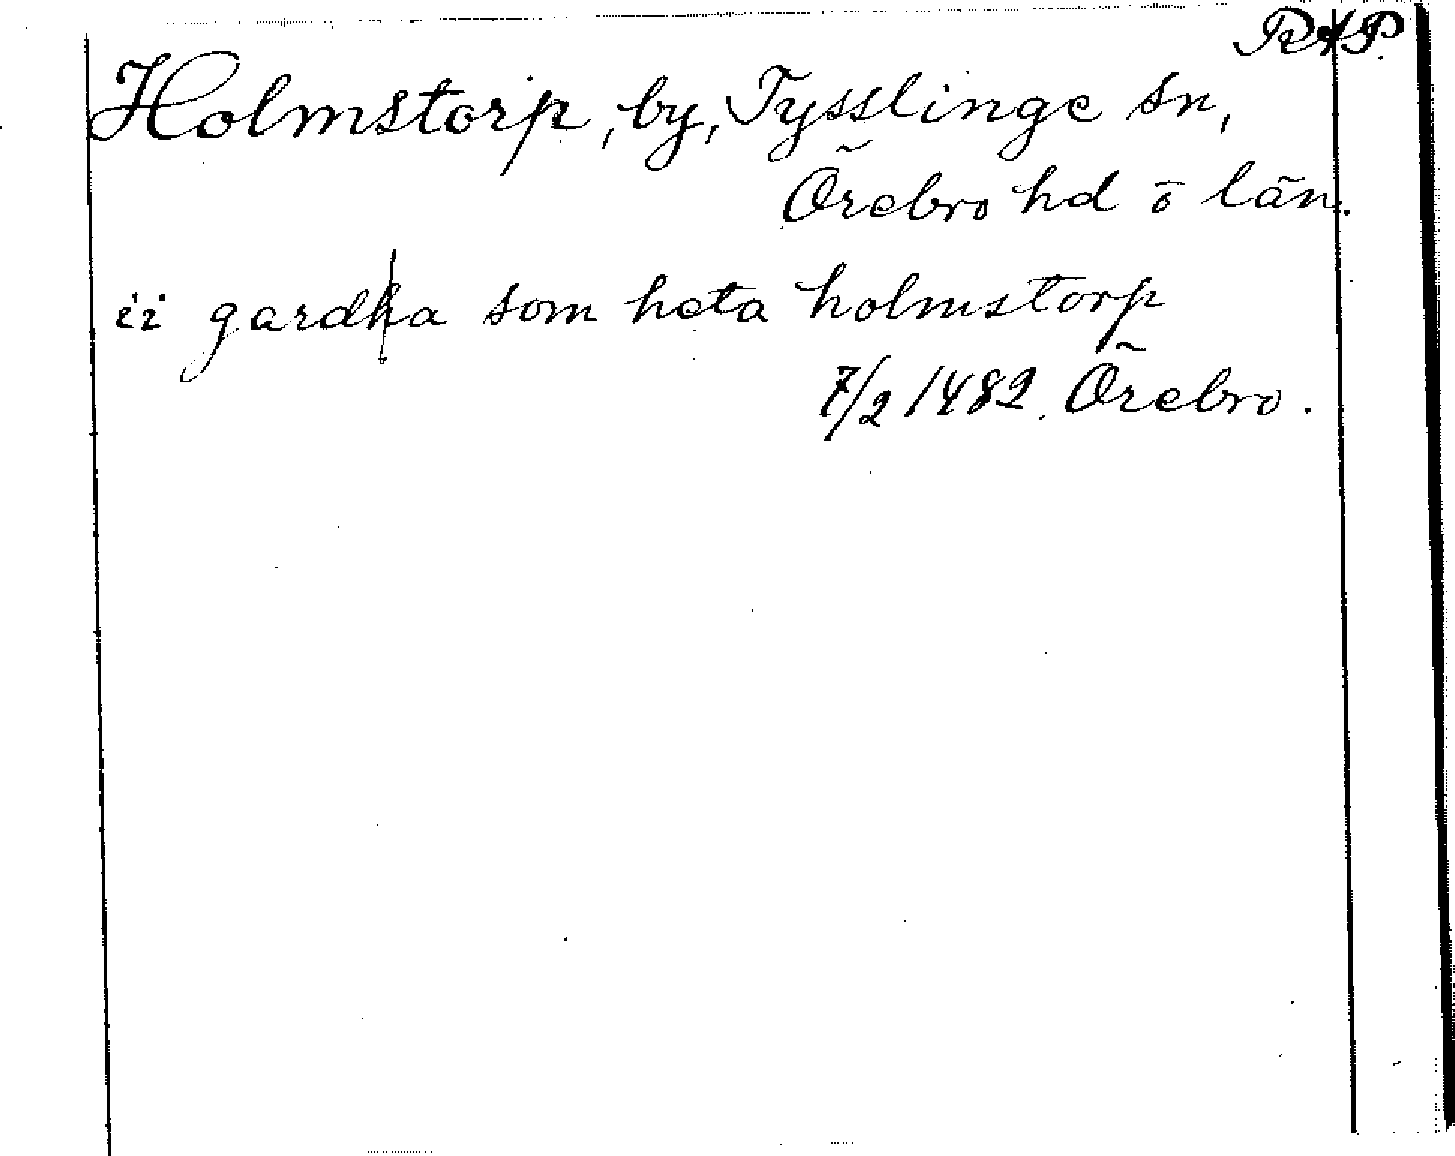 RAP
Holmstorp, by, Tysslinge sn,
Örebro hd o län.
ii gardha som heta holmstorp
7/2 1482. Örebro.